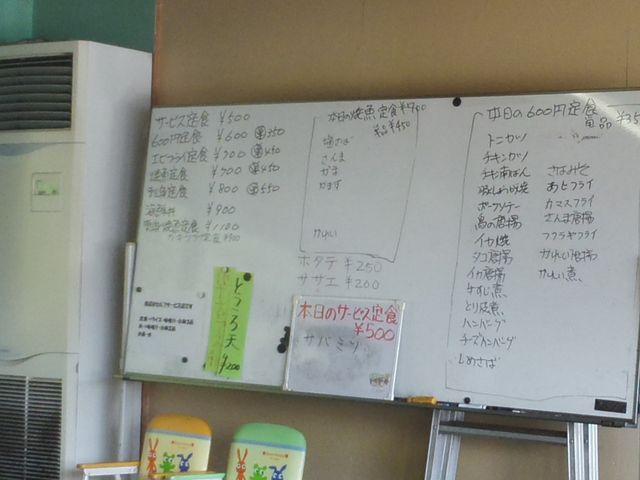 サービス定食 ¥500
600円定食 ¥600 単350
エビフライ定食 ¥700 単450
焼魚定食 ¥700 単450
刺身定食 ¥800 単550
海鮮丼 ¥900
¥1100
カキフライ定食 ¥900
本日の焼魚定食 ¥700
単品 ¥450
塩さば
さんま
かます
かれい
ホタテ ¥250
サザエ ¥200
ところ天
¥200
本日のサービス定食
¥500
サバミソ
本日の600円定食
単品 ¥35
トンカツ
チキンカツ
チキン南ばん
豚しょうが焼
ポークソテー
鳥の唐揚
イカ焼
タコ唐揚
イカ唐揚
牛すじ煮
とり皮煮
ハンバーグ
チーズハンバーグ
しめさば
さばみそ
あじフライ
カマスフライ
さんま唐揚
フクラギフライ
かれい唐揚
かれい煮